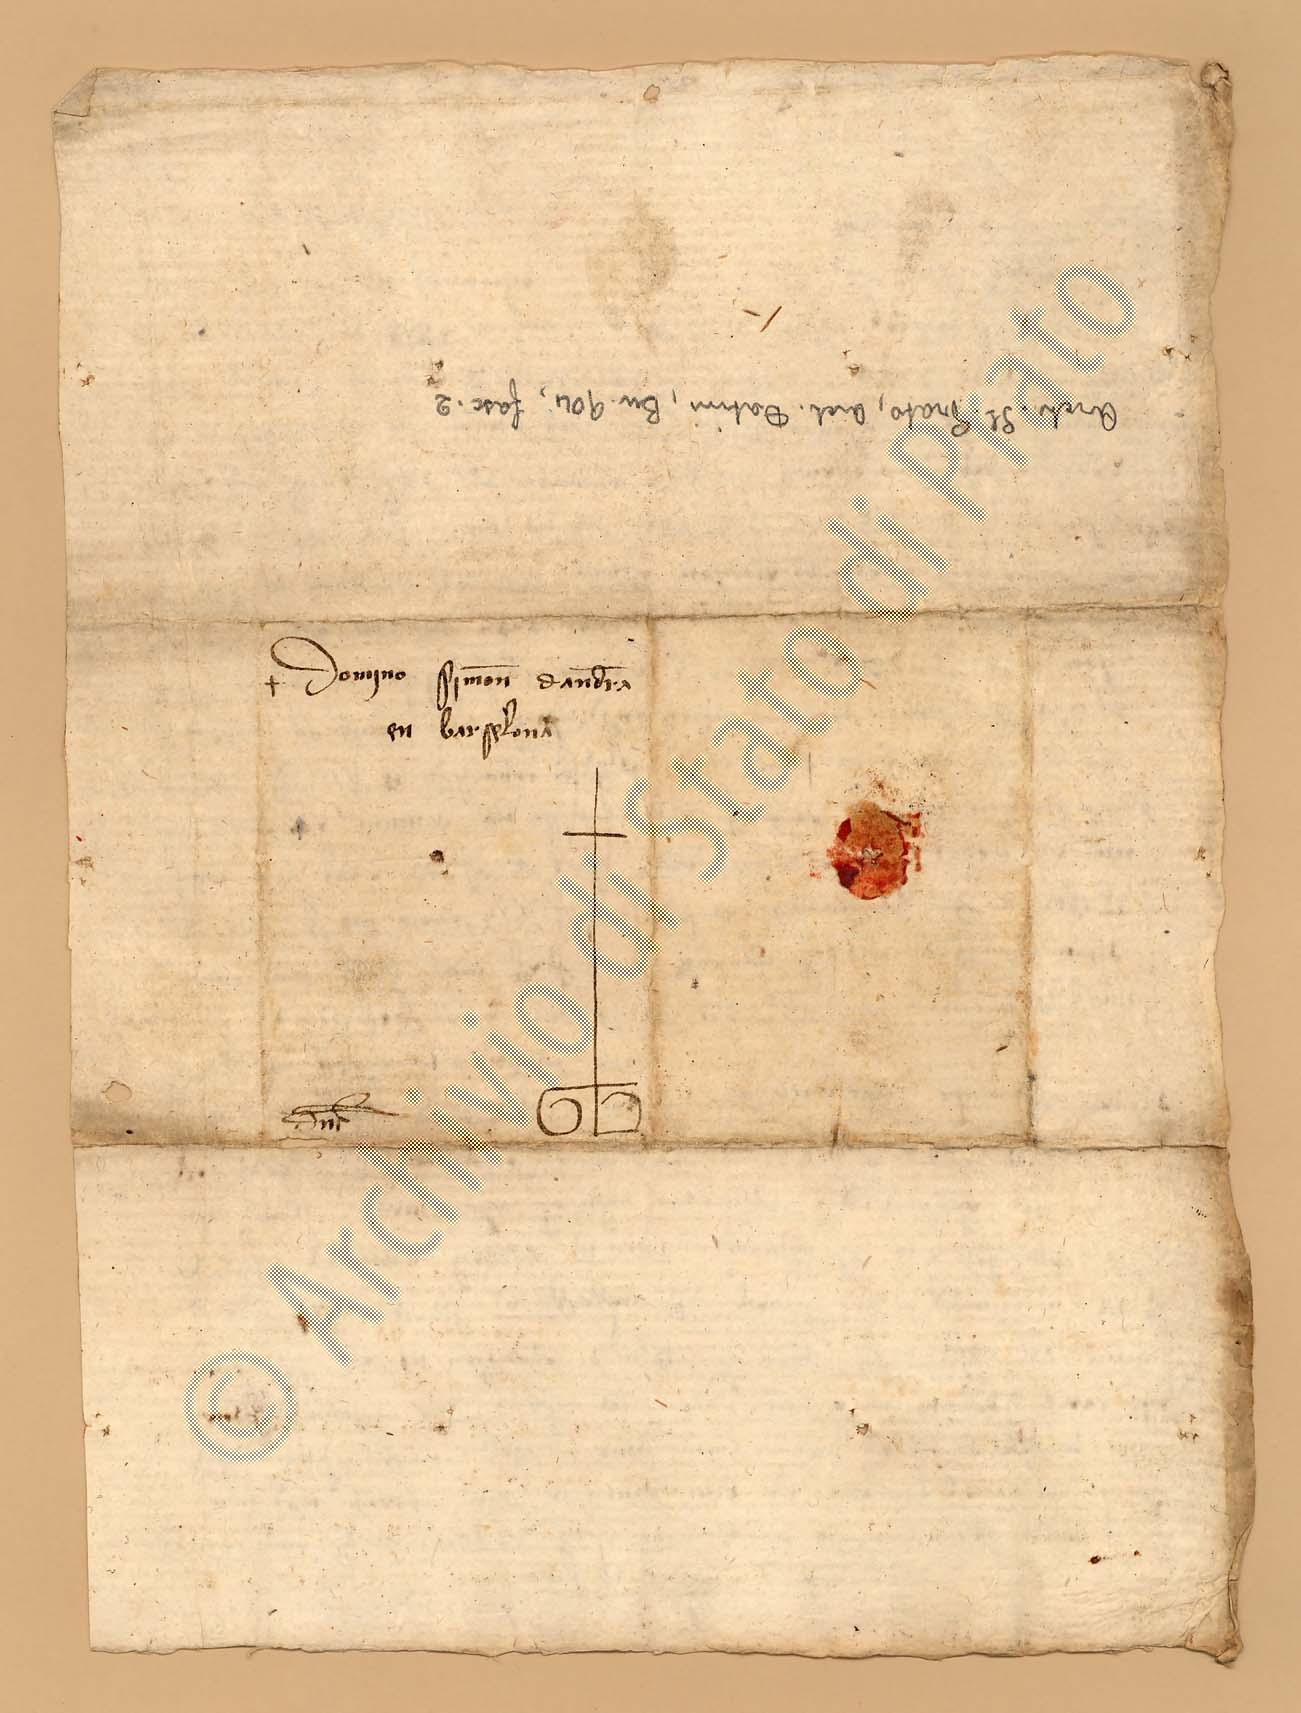 Arch. St. Prato, Arch. Datini, Bu. 904, fasc. 2
+ Domino Simon d'andrea
en barselona
© Archivio di Stato di Prato